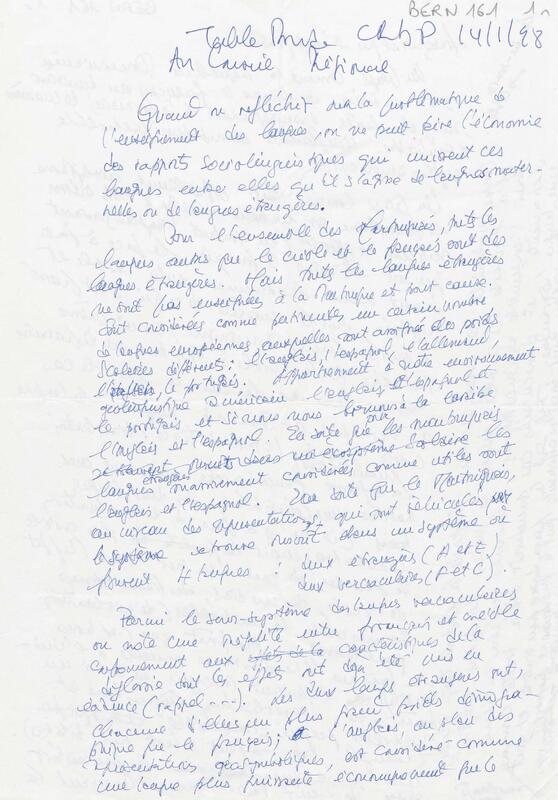 BERN 161 1n
Table Ronde CRDP 14/1/98
An Caraïe Régional
Quand on réfléchit sur la problématique de
l'enseignement des langues, on ne peut faire l'économie
des rapports sociolinguistiques qui unissent ces
langues entre elles qu'il s'agisse de langues mater-
nelles ou de langues étrangères.
Pour l'ensemble des Martiniquais, toutes les
langues autres que le créole et le français sont des
langues étrangères. Mais toutes les langues étrangères
ne sont pas enseignées à la Martinique et pour cause.
Sont considérées comme pertinentes un certain nombre
de langues européennes auxquelles sont des poids
scolaires différents : l'anglais, l'espagnol, l'allemand,
l'italien, le portugais. Appartiennent à notre environnement
géolinguistique américain l'anglais et l'espagnol et
le portugais et si nous nous bornons à la caraïbe
l'anglais et l'espagnol. En sorte que pour les martiniquais
se trouvent dans un écosystème scolaire les
langues étrangères considérées comme utiles sont
l'anglais et l'espagnol. En sorte que le Martiniquais,
au niveau des représentations qui sont véhiculées par
le système se trouve dans un système où
4 langues : deux étrangères (A et E)
deux vernaculaires (F et C).
Parmi le sous-système des langues vernaculaires
on note une inégalité entre français et créole
conformément aux caractéristiques de la
diglossie dont les effets ont déjà été mis en
évidence (rappel ---). Les deux langues étrangères ont,
chacune d'elles un plus grand poids démogra-
phique que le français ; l'anglais, au plan des
représentations géosymboliques, est considéré comme
une langue plus puissante économiquement que le